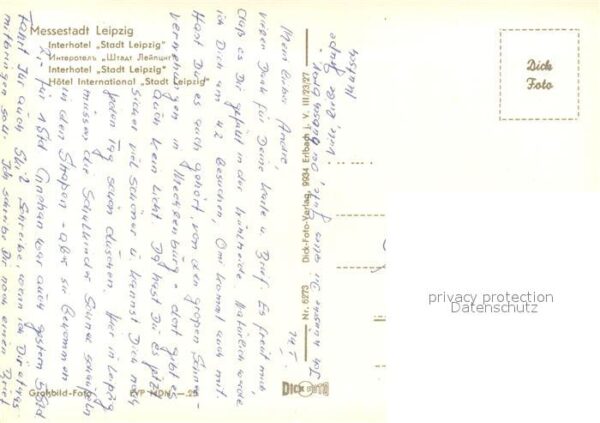 Messestadt Leipzig
Interhotel „Stadt Leipzig“
Интеротель „Штадт Лейпциг“
Interhotel „Stadt Leipzig“
Hôtel International „Stadt Leipzig“
Dick
Foto
Mein lieber André,
vielen Dank für Deine Karte u. Brief. Es freut mich,
daß es Dir gefällt in der Natürlich werde
ich Dich am 4.2. besuchen, Omi kommt auch mit.
Hast Du es auch gehört, von den großen Schnee-
verwehungen in Mecklenburg - dort gibt es
auch kein Licht. Da hast Du es jetzt
sicher viel schöner u. kannst Dich noch
jeden Tag schön duschen. Hier in Leipzig
müssen die Schulkinder Schnee schippen
in den Straßen - aber sie bekommen
für 1 Std. war auch gestern 5 Std.
Fahrt Ihr auch Ski? Schreibe, wenn ich Dir etwas
mitbringen soll. Ich schreibe Dir noch einen Brief
Ich wünsche Dir alles Gute,
viele, liebe Grüße
Nr. 6273
Dick-Foto-Verlag, 9934 Erlbach i. V. III/23/27
DICK FOTO
Großbild-Foto
EVP MDN —.25
privacy protection
Datenschutz